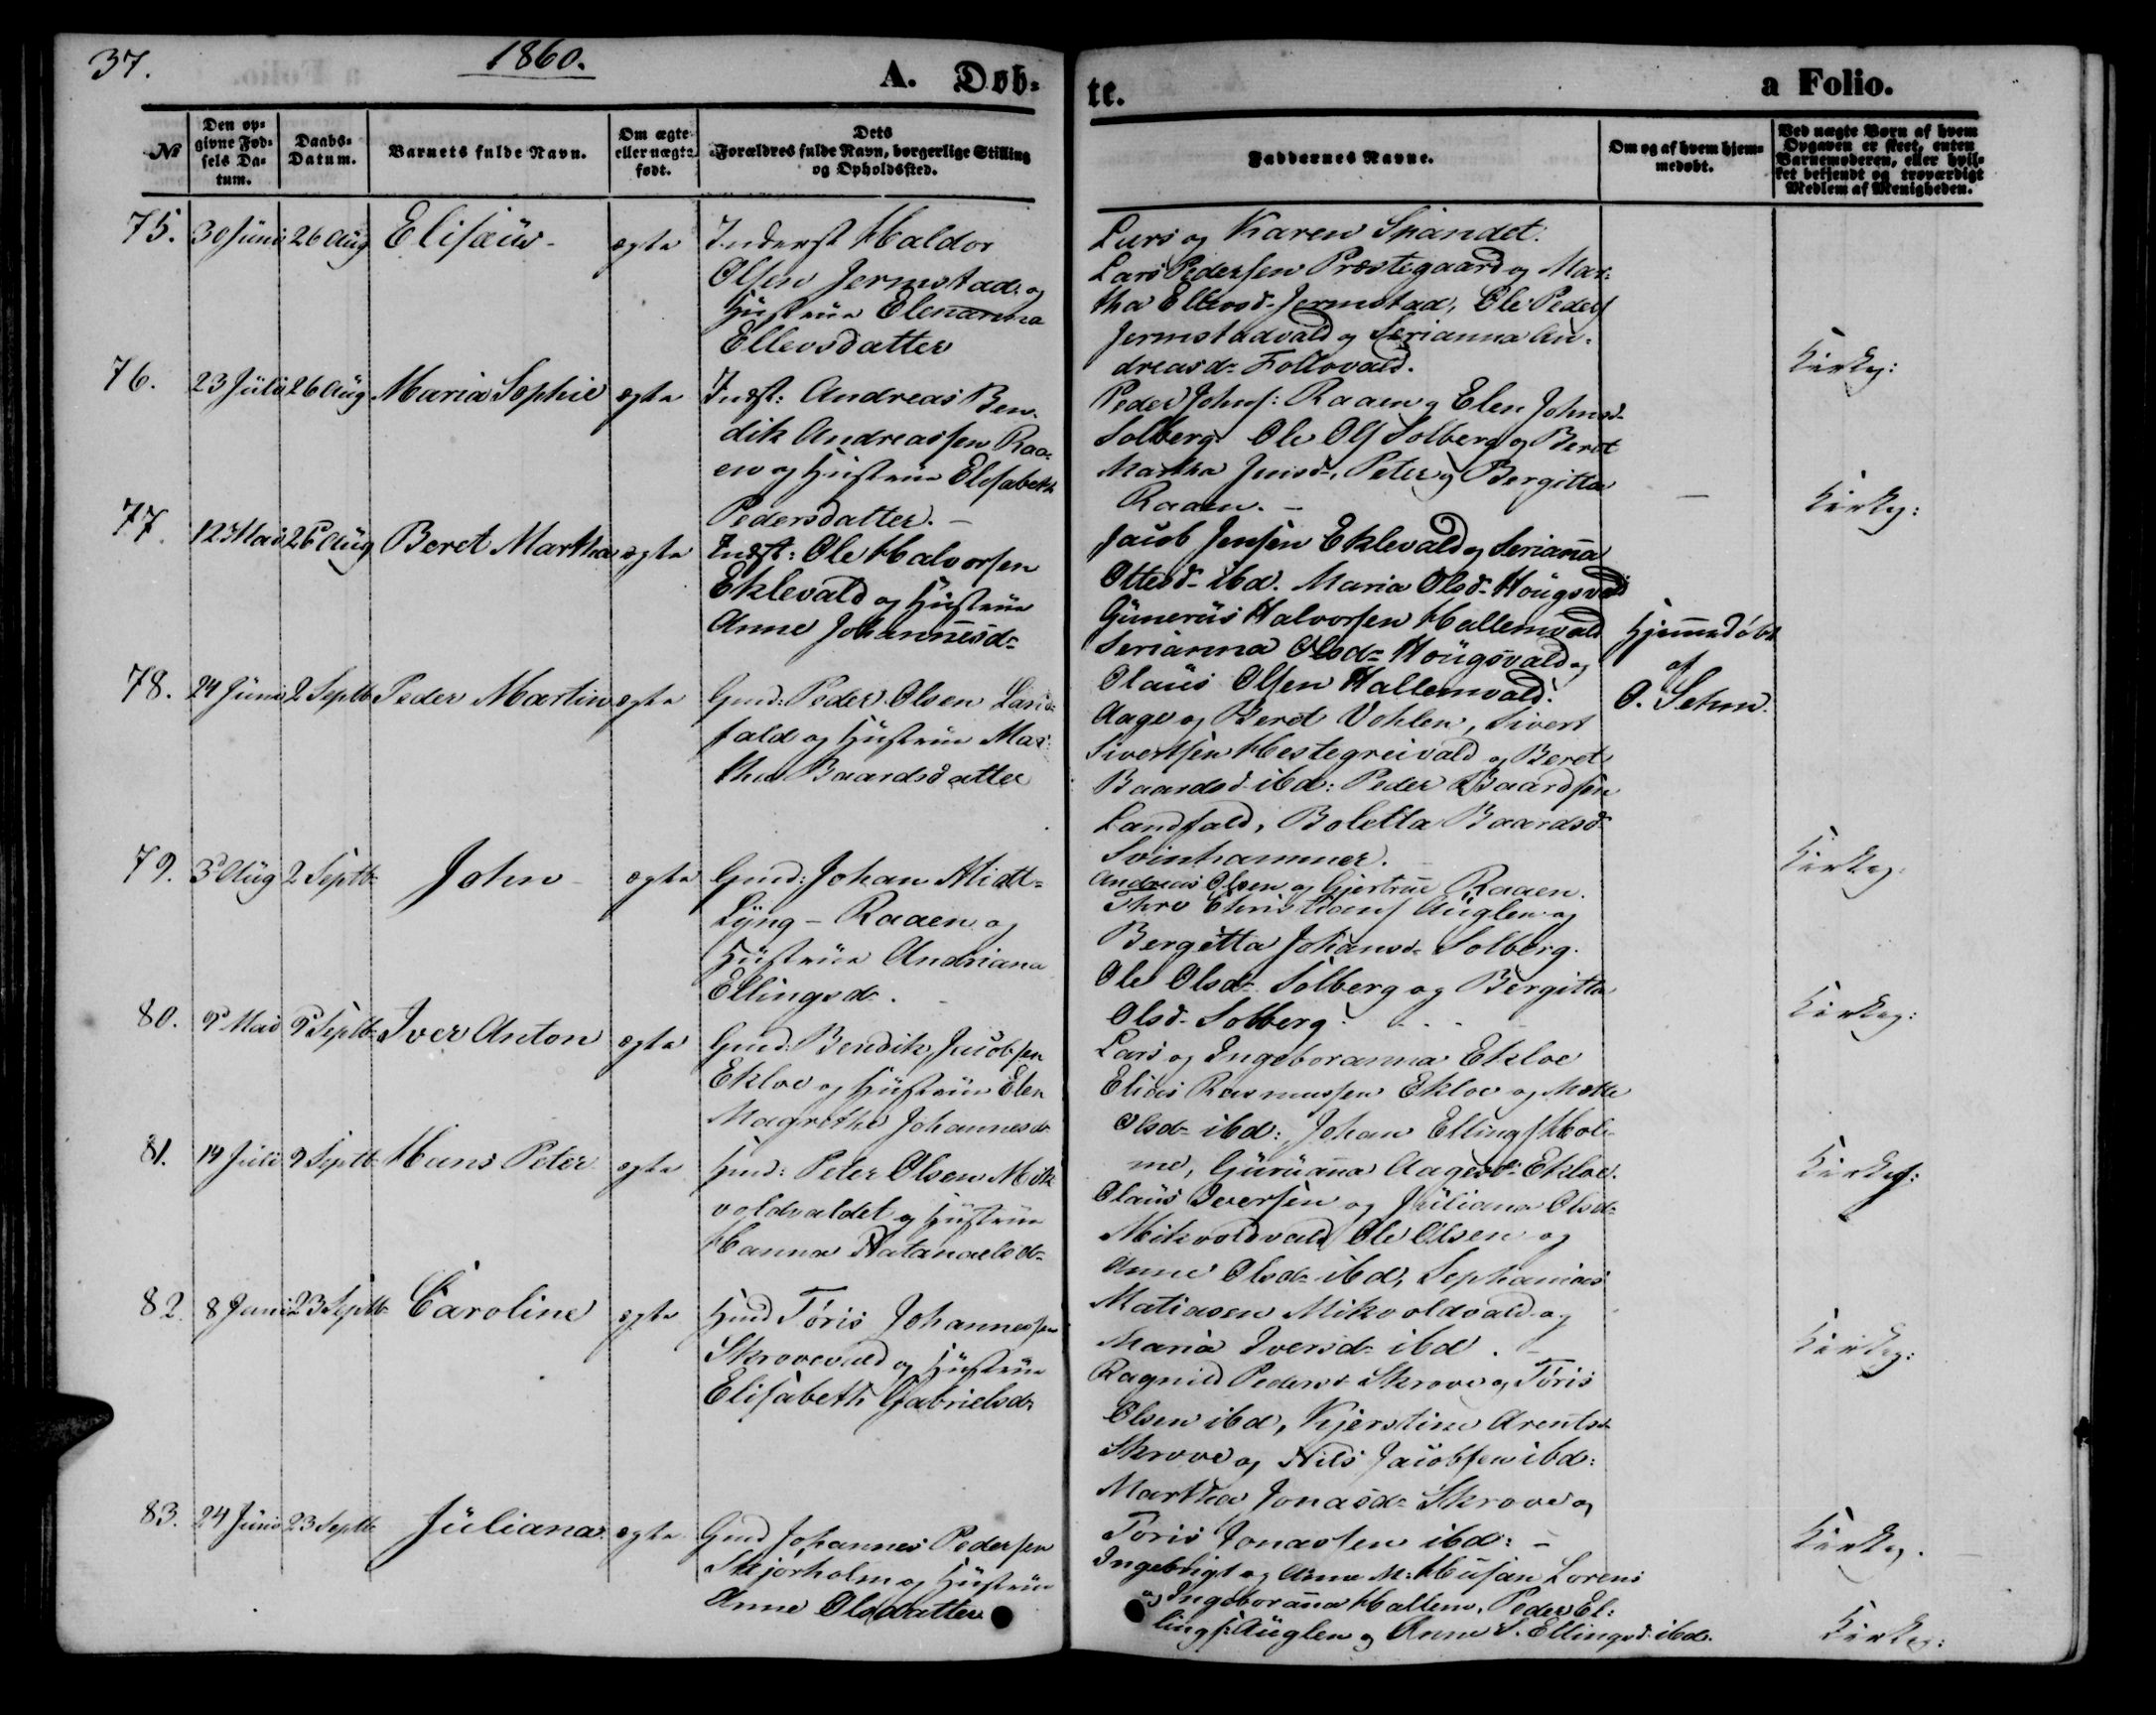 37.
1860.
A. Døb-
№
Den op-
givne Fød-
sels Da-
tum.
Daabs-
Datum.
Barnets fulde Navn.
Om ægte
eller uægte
født.
Dets
Forældres fulde Navn, borgerlige Stilling
og Opholdssted.
75. 30 Juni 26 Aug Elisæus - ægte Inderst Haldor
Olsen Jermstad og
Hustrue Elenanna
Ellevsdatter
76. 23 Juli 26 Aug Maria Sophie ægte Indst: Andreas Ben-
dik Andreassen Raa-
en og Hustrue Elisabeth
Pedersdatter. -
77. 12 Mai 26 Aug Beret Martha ægte Indst: Ole Halvorsen
Eklevald og Hustrue
Anne Johannesd-
78. 24 Juni 2 Septb- Peder Martin ægte Gmd: Peder Olsen Lands-
fald og Hustrue Mar-
tha Baardsdatter
79. 3 Aug 2 Septb- John - ægte Gmd: Johan Midt-
Lyng - Raaen og
Hustrue Andriana
Ellingsd-.
80. 9 Mai 9 Septb- Iver Anton ægte Gmd: Bendik Jacobsen
Ekloe og Hustrue Elen
Magrethe Johannesd-
81. 14 Juli 9 Septb- Hans Peter ægte Hmd: Peter Olsen Mik-
voldvaldet og Hustrue
Hanna Natanaelsd-
82. 8 Juni 23 Septb- Caroline ægte Hmd Tøris Johannessen
Skrovevald og Hustrue
Elisabeth Gabrielsd-
83. 24 Juni 23 Septb- Juliana ægte Gmd Johannes Pedersen
Skjørholm og Hustrue
Anne Olsdatter
te.
a Folio.
Faddernes Navne.
Om og af hvem hjem-
medøbt.
Ved uægte Børn af hvem
Opgaven er skeet, enten
Barnemoderen, eller hvil-
ket bekjendt og troværdigt
Medlem af Menigheden.
Lars og Karen Spandet.
Lars Pedersen Præstegaard og Mar-
tha Ellevsd- Jermstad, Ole Peders
Jermstadvald og Serianna An-
dreasd- Follovald. Kirkeg:
Peder Johns: Raaen og Elen Johnsd-
Solberg. Ole Ols Solberg og Beret
Martha Jensd-, Peter og Bergitta
Raaen. - - Kirkeg:
Jacob Jensen Eklevald og Serianna
Ottesd- ibd. Maria Olsd- Hougsvald
Gunerius Halvorsen Hallemvald Hjemmedøbt
Serianna Olsd- Hougsvald og af
Olaus Olsen Hallemvald. O. Sehm.
Aage og Beret Vohlen, Sivert
Sivertsen Hestegreivald og Beret
Baardsd- ibd: Peder Baardsen
Landfald, Boletta Baardsd-
Svinhammer. Kirkeg:
Andreas Olsen og Gjertrue Raaen.
Thre Christians Auglen og
Bergitta Johansd- Solberg.
Ole Olsd- Solberg og Bergitta
Olsd- Solberg. Kirkeg:
Lars og Ingeboranna Ekloe
Elias Rasmussen Ekloe og Mette
Olsd- ibd: Johan Ellings Hol-
me, Guruanna Aagesd- Ekloe. Kirkeg:
Olaus Iversen og Juliana Olsd-
Mikvoldvald Ole Olsen og
Anne Olsd- ibd, Sephanias
Matiasen Mikvoldvald og
Maria Iversd- ibd. - Kirkeg:
Ragnild Pedersd- Skrove og Tøris
Olsen ibd, Kjerstine Arentsd-
Skrove og Nils Jacobsen ibd:
Martha Jonasd- Skrove og
Tøris Jonassen ibd: - Kirkeg.
Ingebrigt og Anne M: Husan Lorens
og Ingeboranna Hallem, Peder El-
lings: Auglen og Anne S. Ellingsd- ibd. Kirkeg: